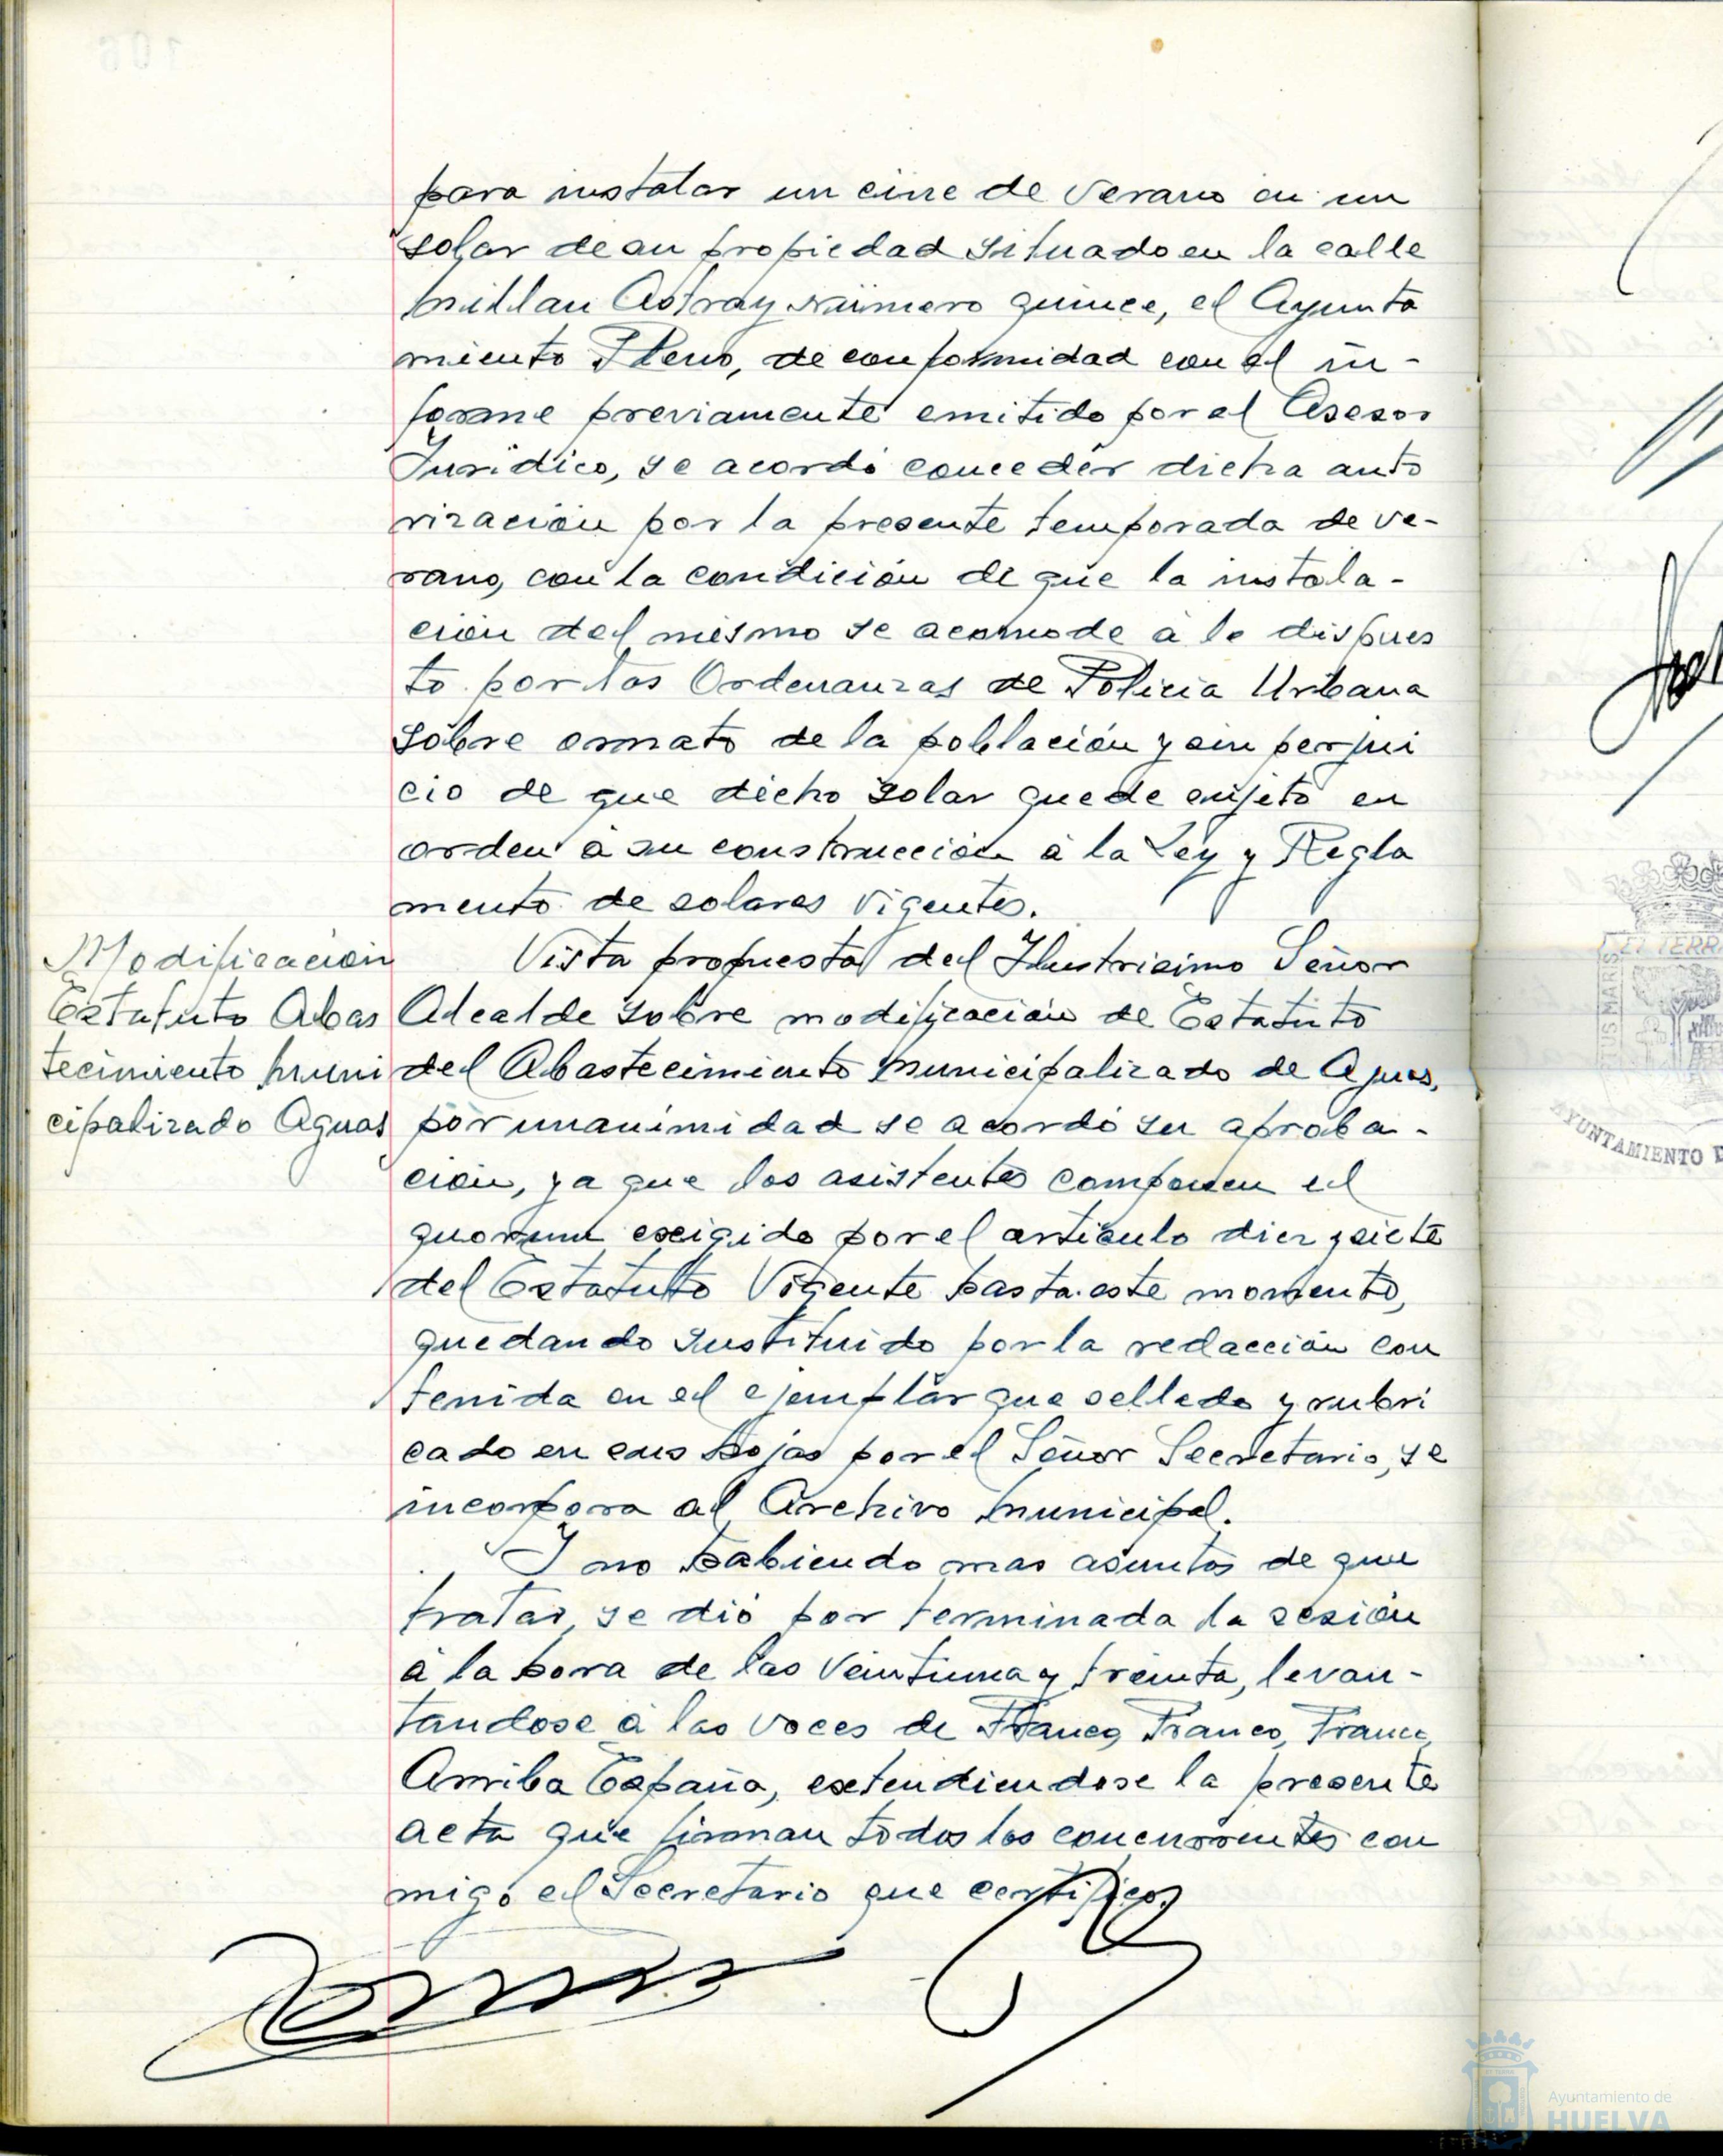 para instalar un cine de verano en un
solar de su propiedad situado en la calle
Millan Astray número quince, el Ayunta
miento Pleno, de conformidad con el in-
forme previamente emitido por el Asesor
Juridico, se acordó conceder dicha auto
rización por la presente temporada de ve-
rano, con la condición de que la instala-
ción del mismo se acomode a lo dispues
to por las Ordenanzas de Policia Urbana
sobre ornato de la población y sin perjui
cio de que dicho solar quede sujeto en
orden a su construcción á la Ley y Regla
mento de solares vigentes.
Modificación
Estatuto Abas
tecimiento Muni
cipalizado Aguas
Vista propuesta del Ilustrisimo Señor
Alcalde sobre modificación de Estatuto
del Abastecimiento Municipalizado de Aguas,
por unanimidad se acordó su aproba-
ción, ya que los asistentes componen el
quorum exigido por el articulo diez y siete
del Estatuto Vigente hasta este momento,
quedando sustituido por la redacción con
tenida en el ejemplar que sellado y rubri
cado en sus hojas por el Señor Secretario, se
incorpora al Archivo Municipal.
Y no habiendo mas asuntos de que
tratar, se dió por terminada la sesión
á la hora de las veintiuna y treinta, levan-
tandose á las voces de Franco, Franco, Franco,
Arriba España, extendiendose la presente
acta que firman todos los concurrentes con
migo el Secretario que certifico.
AYUNTAMIENTO D
Ayuntamiento de
HUELVA